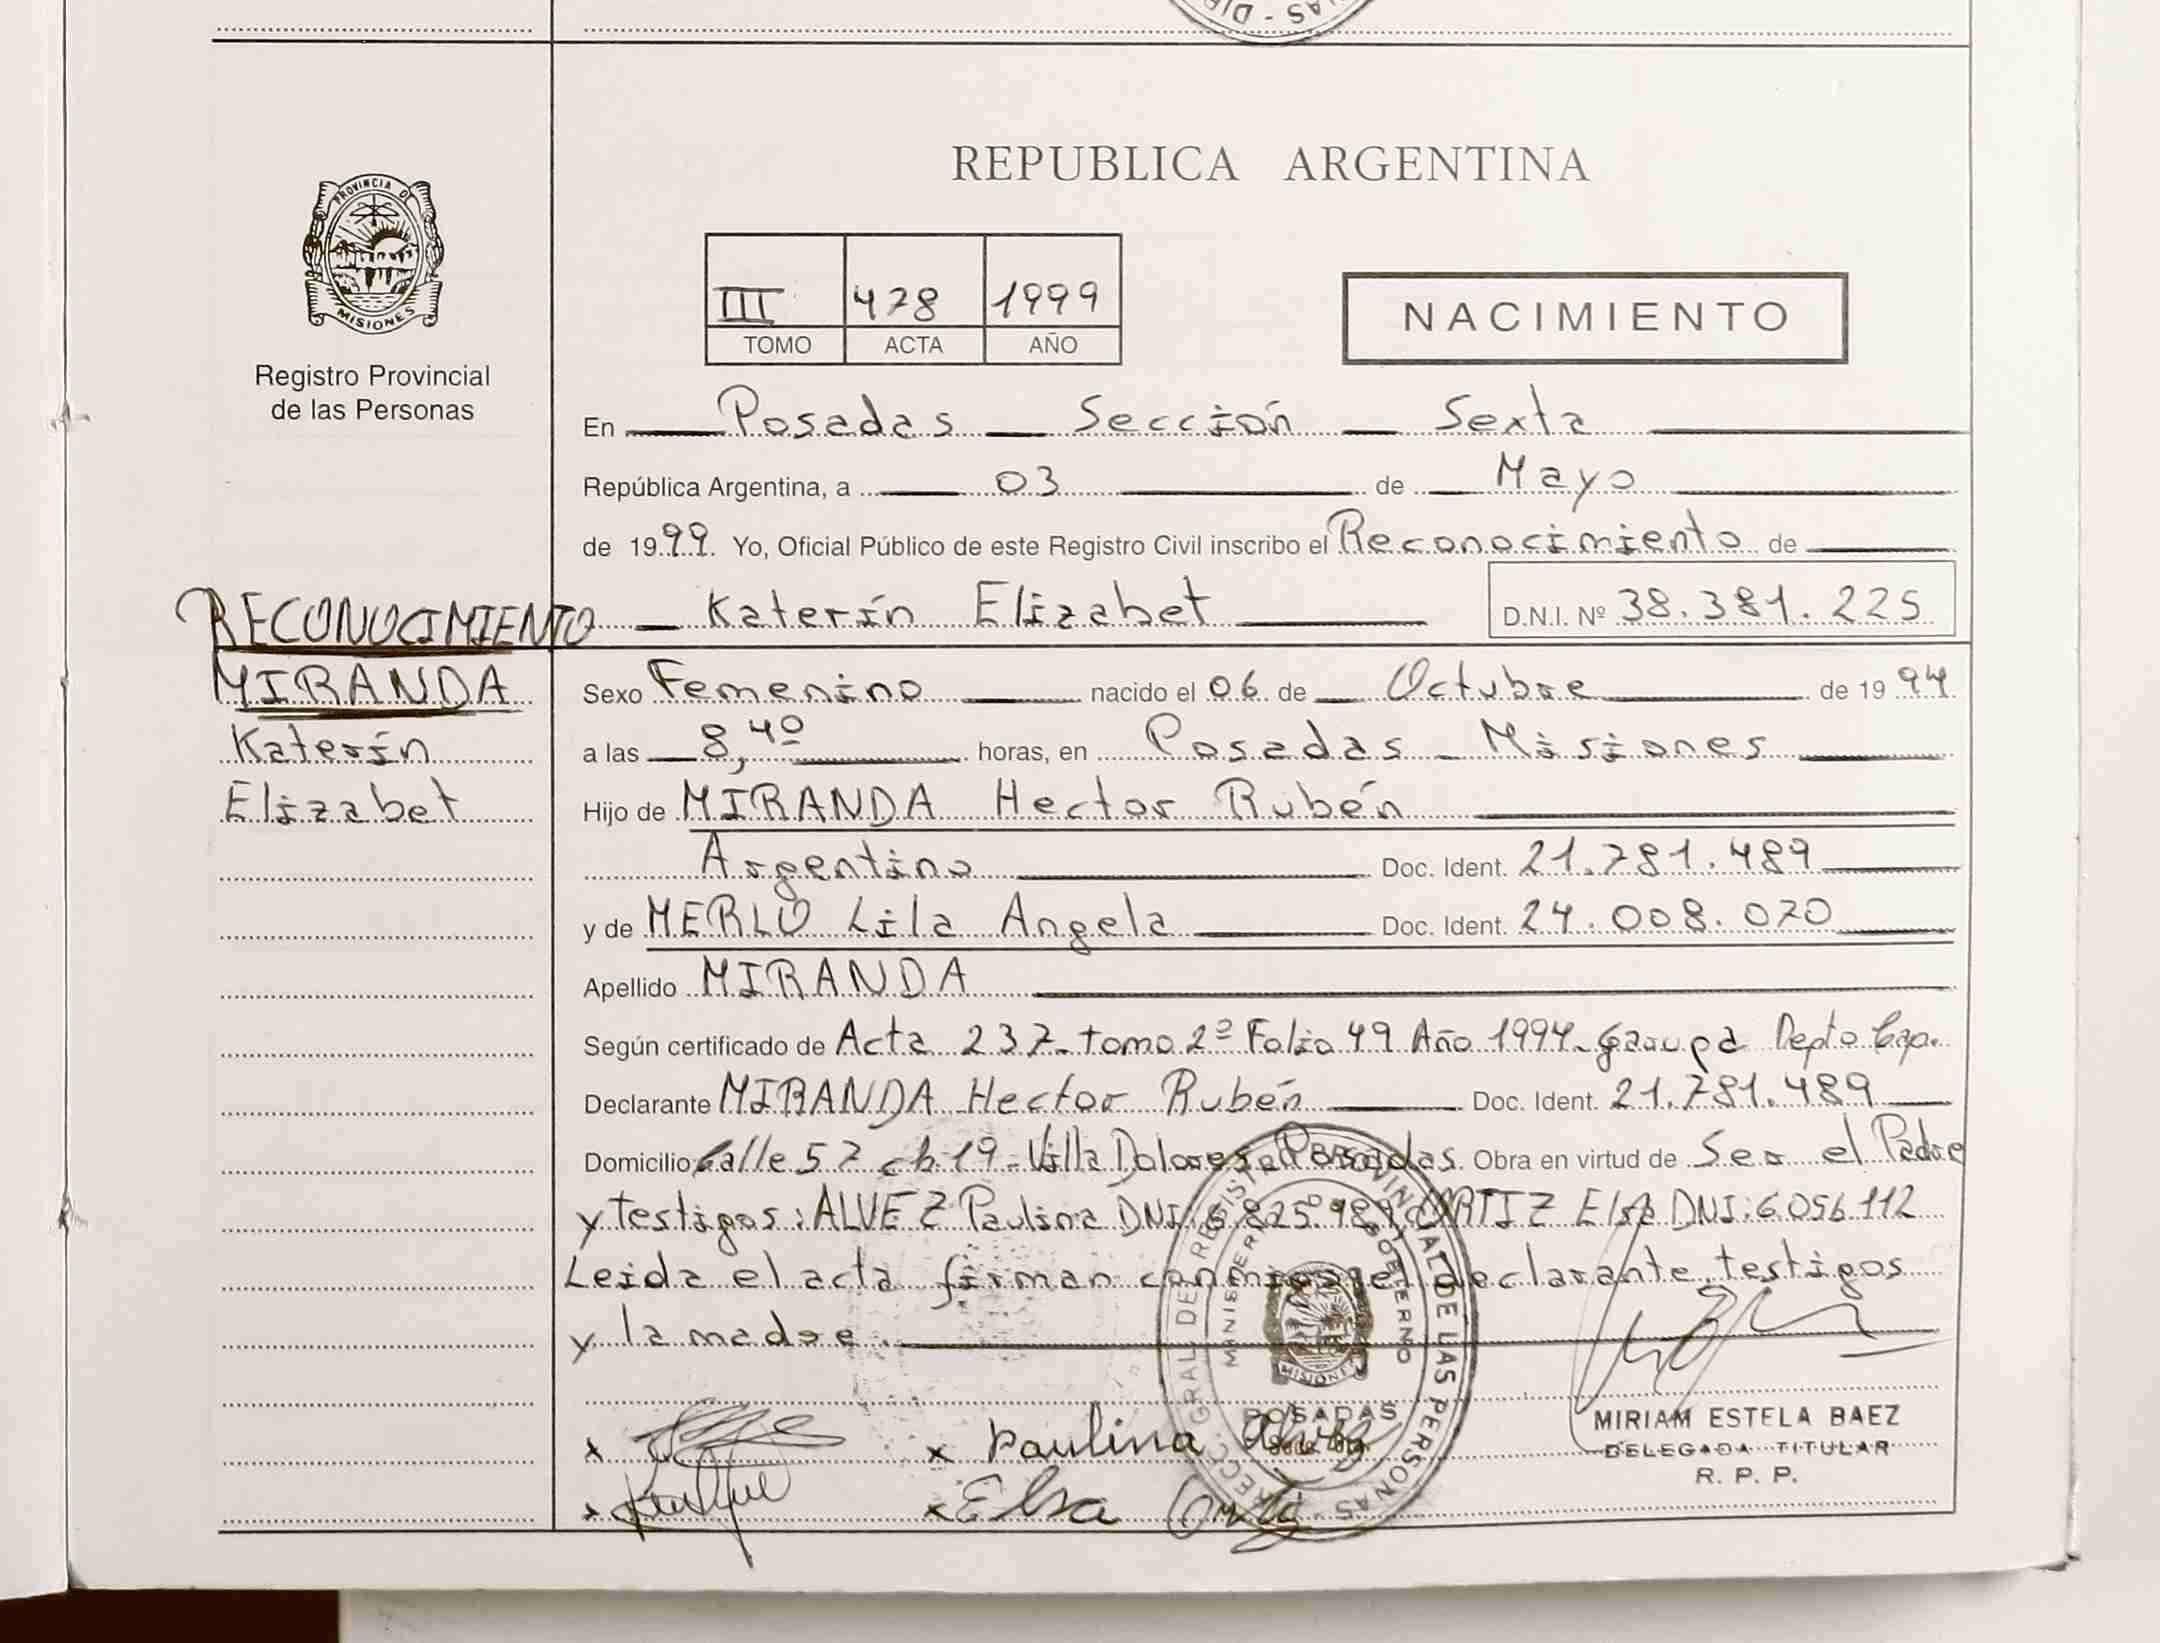 REPUBLICA ARGENTINA
PROVINCIA DE
MISIONES
Registro Provincial
de las Personas
III 478 1999
TOMO ACTA AÑO
NACIMIENTO
En Posadas Sección Sexta
República Argentina, a 03 de Mayo
de 1999. Yo, Oficial Público de este Registro Civil inscribo el Reconocimiento de
Katerín Elizabet D.N.I. Nº 38.381.225
RECONOCIMIENTO
MIRANDA
Katerín
Elizabet
Sexo Femenino nacido el 06 de Octubre de 1994
a las 8,40 horas, en Posadas - Misiones
Hijo de MIRANDA Hector Rubén
Argentino Doc. Ident. 21.781.489
y de MERLO Lila Angela Doc. Ident. 24.008.070
Apellido MIRANDA
Según certificado de Acta 237- tomo 2º Folio 49 Año 1994- Garupa Depto Cap.
Declarante MIRANDA Hector Rubén Doc. Ident. 21.781.489
Domicilio Calle 57 ch 19 - Villa Dolores - Posadas. Obra en virtud de Ser el Padre
y testigos: ALVEZ Paulina DNI: ORTIZ Elsa DNI: 6.056.112
Leida el acta firman conmigo el declarante, testigos
y la madre.
DIRECC. GRAL. DE REGISTRO PROVINCIAL DE LAS PERSONAS
MINISTERIO DE GOBIERNO
MISIONES
POSADAS
MIRIAM ESTELA BAEZ
DELEGADA TITULAR
R. P. P.
x x Paulina Alvez
x x Elsa Ortiz